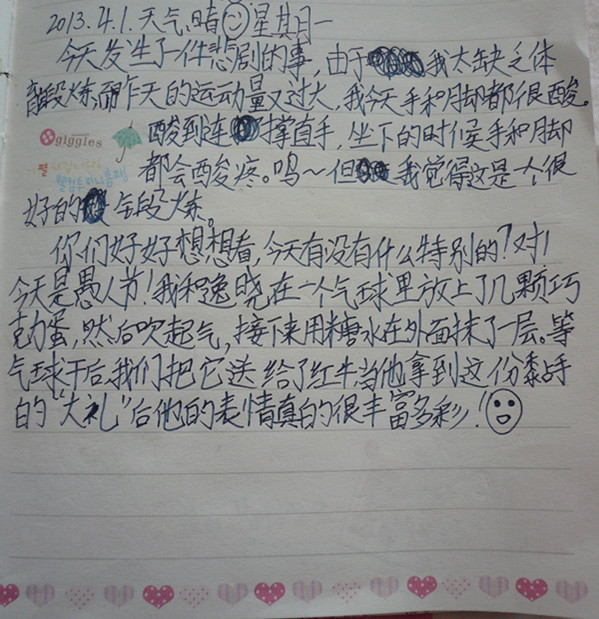 2013.4.1.天气.晴 星期一
今天发生了一件悲剧的事,由于我太缺乏体
育锻炼,而昨天的运动量又过大,我今天手和脚都很酸。
giggles 酸到连撑直手,坐下的时候手和脚
都会酸疼。呜~但我觉得这是一个很
好的锻炼。
你们好好想想看,今天有没有什么特别的?对!
今天是愚人节!我和逸晓在一个气球里放上了几颗巧
克力蛋,然后吹起气,接下来用糖水在外面抹了一层。等
气球干后,我们把它送给了红牛,当他拿到这份黏手
的“大礼”后他的表情真的很丰富多彩!